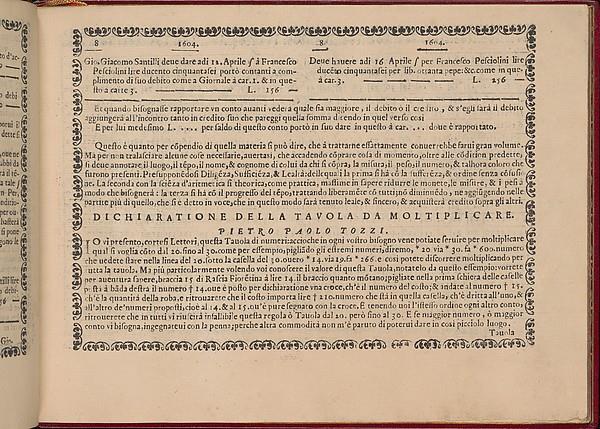 8 1604. 8 1604.
Gio. Giacomo Santilli deue dare adi 12. Aprile ſ à Franceſco
Peſciolini lire ducento cinquantaſei portò contanti a com-
plimento di ſuo debito come a Giornale à car. 1. & in que-
ſto a carte 3. L. 256
Deue hauere adi 16 Aprile ſ per Franceſco Peſciolini lire
ducēto cinquantaſei per lib. ottanta pepe: &c. come in que-
à car. 3. L. 256
Et quando biſognaſſe rapportare vn conto auanti vedera quale ſia maggiore, il debito ò il credito, & s'egli ſarà il debito
aggiungerà all'incontro tanto in credito ſuo che pareggi quella ſomma dicendo in quel verſo coſi
E per lui medeſimo L. .... per ſaldo di queſto conto portò in ſuo dare in queſto à car. ... doue è rapportato.
Queſto è quanto per cōpendio di quella materia ſi può dire, che à trattarne eſſattamente conuerrebbe farui gran volume.
Ma per non tralaſciare alcune coſe neceſſarie, auuertaſi, che accadendo cōprare coſa di momento, oltre alle cōdition predette,
ſi deue annotare il luogo, il tēpo, il nome, & cognome di colui da chi ſi cōpra, la miſura, il peſo, il numero, & talhora coloro che
furono preſenti.
ne. La ſeconda con la ſciēza d'aritmetica ſi theorica, come prattica, maſſime in ſapere ridurre le monete, le miſure, & i peſi a
modo che biſognerà: la terza ſi hà cō il progreſſo del tēpo, trattando liberamēte cō tutti, nō diminuēdo, ne aggiungendo nelle
partite più di quello, che ſi è detto in voce, che in queſto modo ſarà tenuto leale, & ſincero, & acquiſterà credito ſopra gli altri.
DICHIARATIONE DELLA TAVOLA DA MOLTIPLICARE.
PIETRO PAOLO TOZZI.
IO vi preſento, corteſi Lettori, queſta Tauola di numeri: accioche in ogni voſtro biſogno vene potiate ſeruire per moltiplicare
qual ſi voglia cōto dal 20. ſino al 30. come per eſſempio, pigliādo gli eſtremi numeri, diremo, * 20 via * 30. fa * 600. numero
che vedete ſtare nella linea del 20. ſotto la caſella del 30. ouero * 14. via 19. fa * 266. e coſi potete diſcorrere moltiplicando per
tutta la tauola. Ma più particolarmente volendo voi conoſcere il valore di queſta Tauola, notatelo da queſto eſſempio: vorrete
per auentura ſapere, braccia 15 di Raſcia Fiorētina à lire 14. il braccio quanto mōtano; pigliate nella prima ſchiera delle caſelle
ch'è la quantità della roba, e ritrouarete che il coſto importa lire † 210. numero che ſtà in quella caſella, ch'è dritta all'vno, &
all'altro de'numeri propoſti, cioè al 14. & al 15. qu'è pure ſegnato con la croce. E tenendo uoi l'iſteſſo ordine in ogni altro conto,
ritrouerete che in tutti vi riuſcirà infallibile queſta regola ò Tauola dal 20. però ſino al 30. E ſe maggior numero, ò maggior
conto vi biſogna, ingegnateui con la penna; perche altra commodità non m'è paruto di poterui dare in coſi picciolo luogo.
Tauola